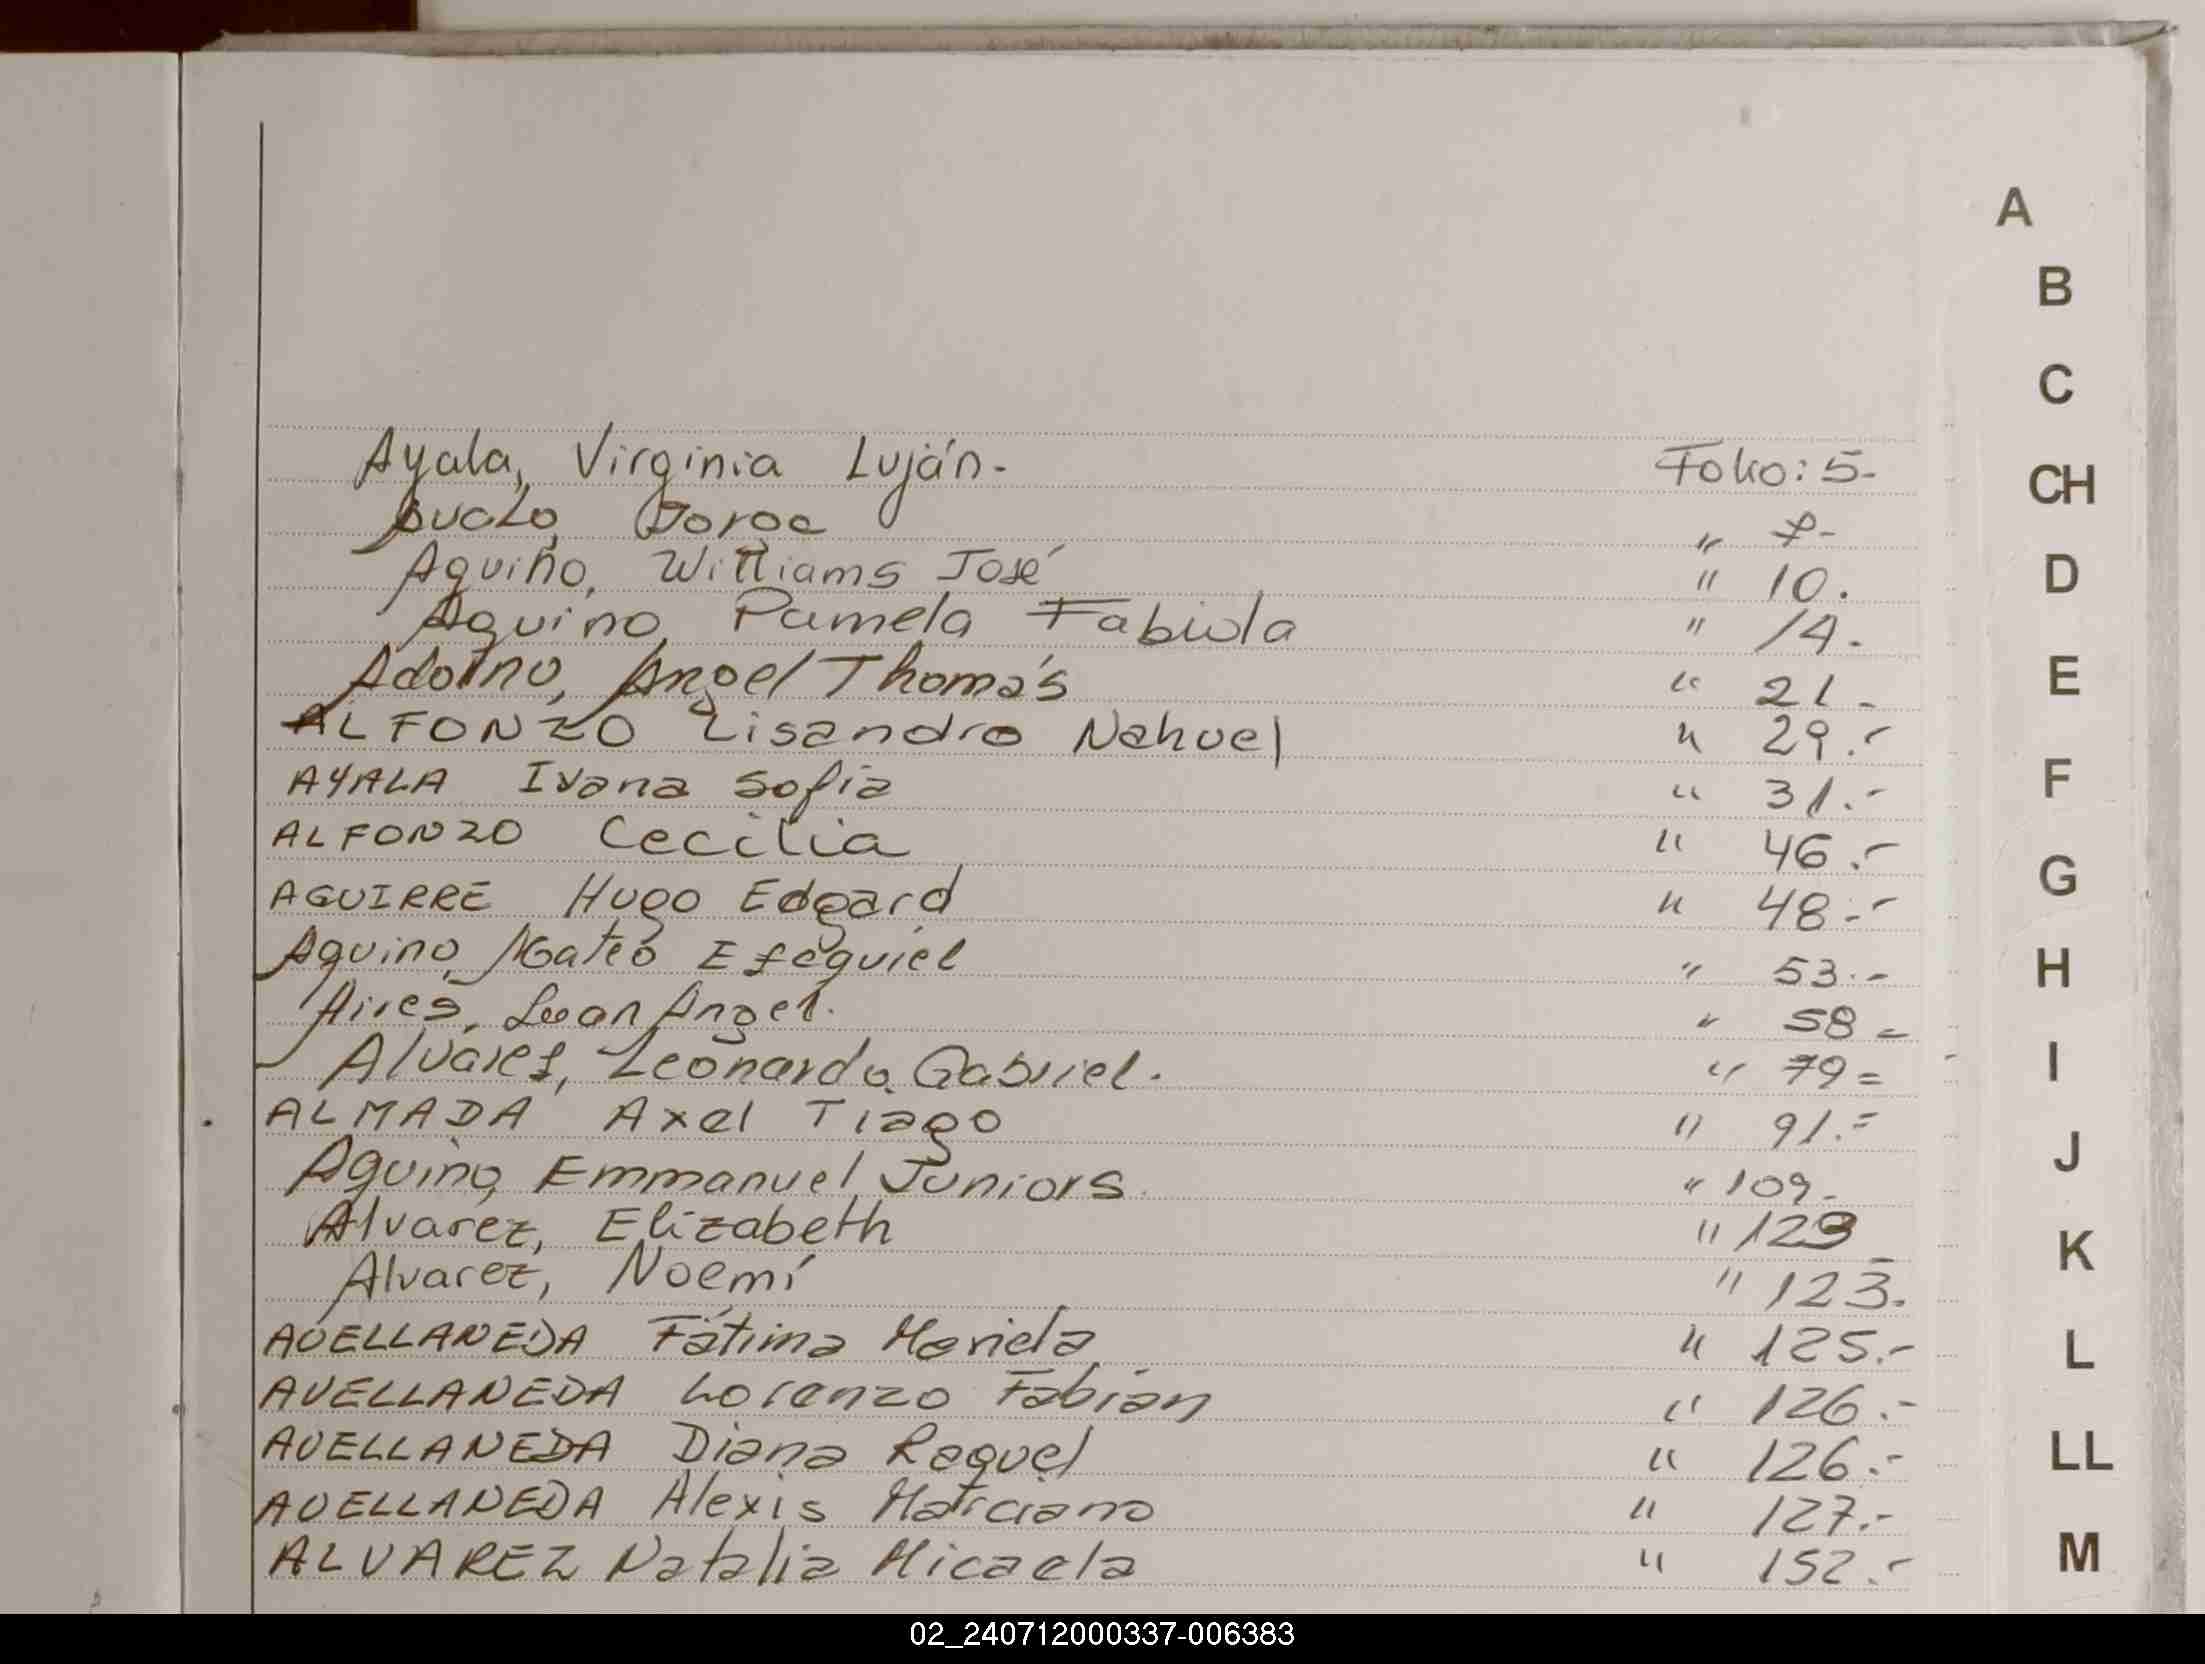 A
B
C
CH
D
E
F
G
H
I
J
K
L
LL
M
Ayala, Virginia Luján.- Folio: 5-
Jorge " 7-
Aquino, Williams José " 10.
Aquino, Pamela Fabiola " 14.
Adorno, Angel Thomás " 21-
ALFONZO Lisandro Nahuel " 29.-
AYALA Ivana Sofia " 31.-
ALFONZO Cecilia " 46.-
AGUIRRE Hugo Edgard " 48.-
Aquino, Mateo Ezequiel " 53.-
Aires, Luan Angel. " 58-
Alvarez, Leonardo Gabriel. " 79=
ALMADA Axel Tiago " 91.=
Aquino, Emmanuel Juniors " 109-
Alvarez, Elizabeth " 123
Alvarez, Noemí " 123.
AVELLANEDA Fátima Mariela " 125.-
AVELLANEDA Lorenzo Fabián " 126.-
AVELLANEDA Diana Raquel " 126.-
AVELLANEDA Alexis " 127.-
ALVAREZ Natalia Micaela " 152.-
02_240712000337-006383